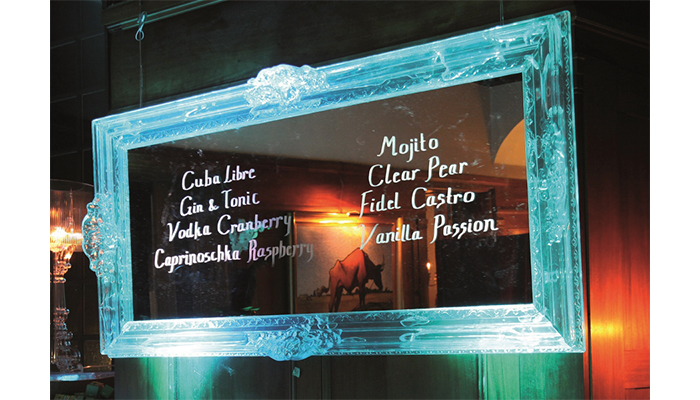 Cuba Libre
Gin & Tonic
Vodka Cranberry
Caprinoschka Raspberry
Mojito
Clear Pear
Fidel Castro
Vanilla Passion